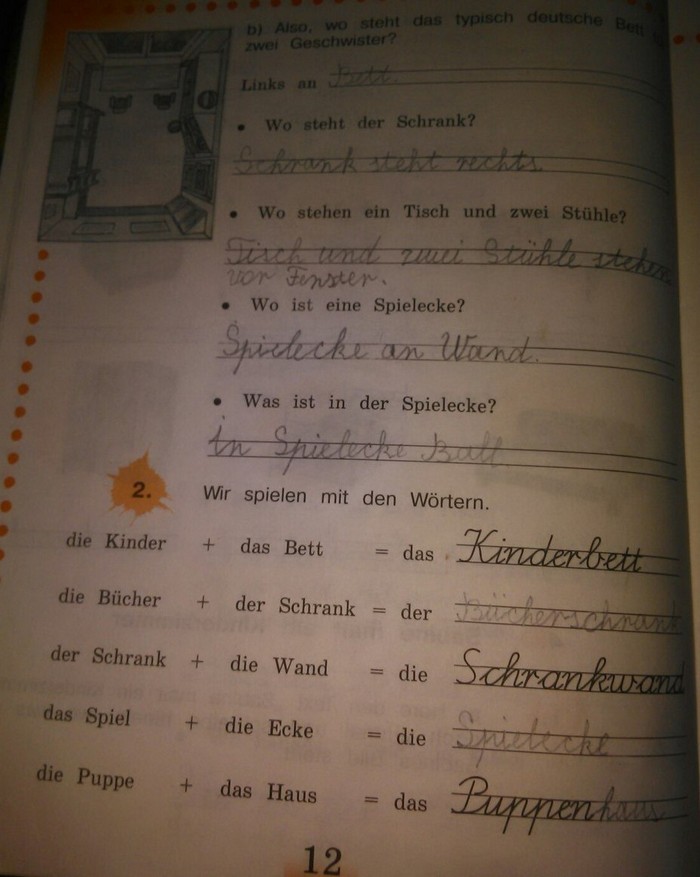 b) Also, wo steht das typisch deutsche Bett
zwei Geschwister?
Links an Bett.
• Wo steht der Schrank?
Schrank steht rechts.
• Wo stehen ein Tisch und zwei Stühle?
Tisch und zwei Stühle stehen
vor Fenster.
• Wo ist eine Spielecke?
Spielecke an Wand.
• Was ist in der Spielecke?
in Spielecke Ball.
2. Wir spielen mit den Wörtern.
die Kinder + das Bett = das Kinderbett
die Bücher + der Schrank = der Bücherschrank
der Schrank + die Wand = die Schrankwand
das Spiel + die Ecke = die Spielecke
die Puppe + das Haus = das Puppenhaus
12